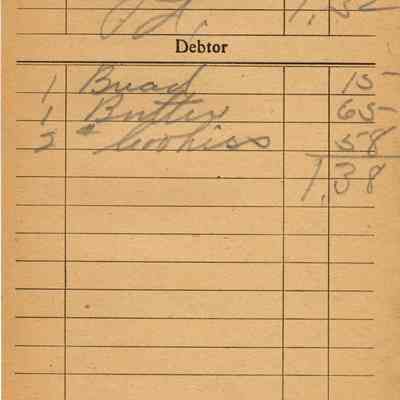 1,32
Debtor
1 Bread 15
1 Butter 65
2 # Cookiss 58
1,38